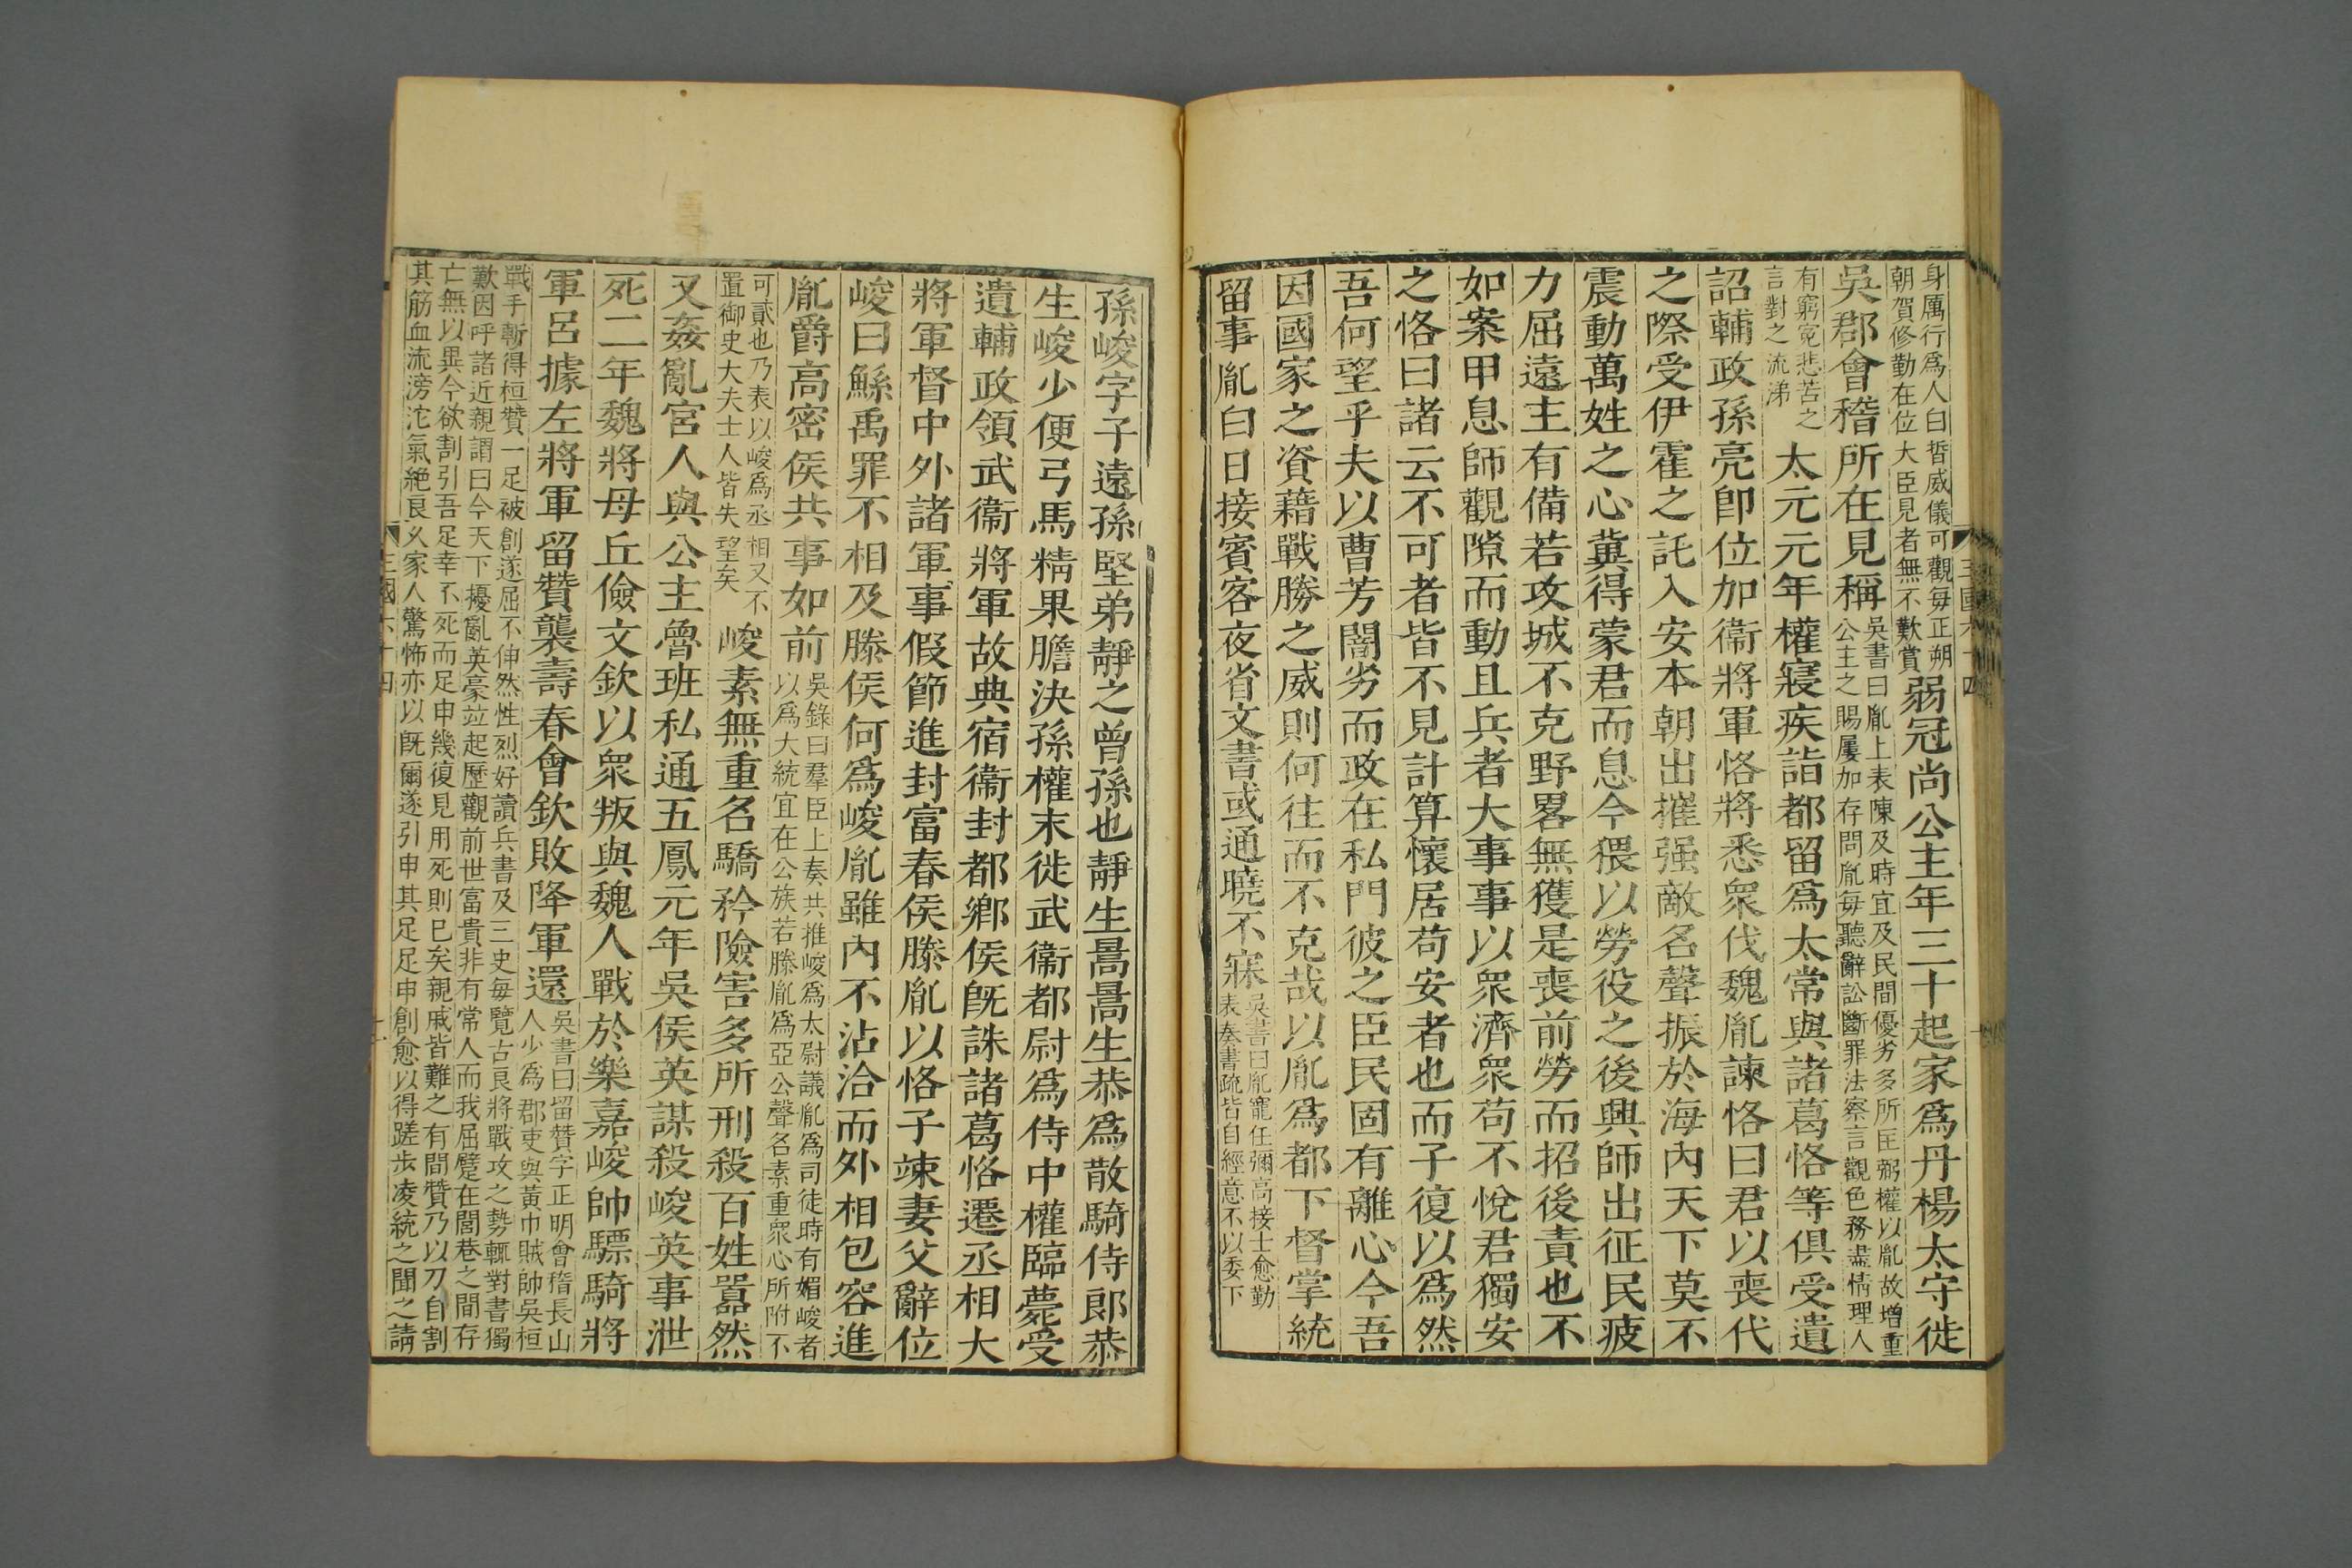 身厲行爲人白晳威儀可觀每正朔
朝賀修勤在位大臣見者無不歎賞
弱冠尚公主年三十起家爲丹楊太守徙
吳郡會稽所在見稱
吳書曰胤上表陳及時宜及民間優劣多所匡弼權以胤故增重
公主之賜屢加存問胤每聽辭訟斷罪法察言觀色務盡情理人
有窮冤悲苦之
言對之流涕
太元元年權寢疾詣都留爲太常與諸葛恪等俱受遺
詔輔政孫亮卽位加衞將軍恪將悉衆伐魏胤諫恪曰君以喪代
之際受伊霍之託入安本朝出摧强敵名聲振於海內天下莫不
震動萬姓之心冀得蒙君而息今猥以勞役之後興師出征民疲
力屈遠主有備若攻城不克野畧無獲是喪前勞而招後責也不
如案甲息師觀隙而動且兵者大事事以衆濟衆苟不悅君獨安
之恪曰諸云不可者皆不見計算懷居苟安者也而子復以爲然
吾何望乎夫以曹芳闇劣而政在私門彼之臣民固有離心今吾
因國家之資藉戰勝之威則何往而不克哉以胤爲都下督掌統
留事胤白日接賓客夜省文書或通曉不寐
吳書曰胤寵任彌高接士愈勤
表奏書疏皆自經意不以委下
三國六十四
孫峻字子遠孫堅弟靜之曾孫也靜生暠暠生恭爲散騎侍郎恭
生峻少便弓馬精果膽決孫權末徙武衞都尉爲侍中權臨薨受
遺輔政領武衞將軍故典宿衞封都鄕侯旣誅諸葛恪遷丞相大
將軍督中外諸軍事假節進封富春侯滕胤以恪子竦妻父辭位
峻曰鯀禹罪不相及滕侯何爲峻胤雖內不沾洽而外相包容進
胤爵高密侯共事如前
吳錄曰羣臣上奏共推峻爲太尉議胤爲司徒時有媚峻者
以爲大統宜在公族若滕胤爲亞公聲名素重衆心所附不
可貳也乃表以峻爲丞相又不
置御史大夫士人皆失望矣
峻素無重名驕矜險害多所刑殺百姓囂然
又姦亂宮人與公主魯班私通五鳳元年吳侯英謀殺峻英事泄
死二年魏將毋丘儉文欽以衆叛與魏人戰於樂嘉峻帥驃騎將
軍呂據左將軍留贊襲壽春會欽敗降軍還
吳書曰留贊字正明會稽長山
人少爲郡吏與黃巾賊帥吳桓
戰手斬得桓贊一足被創遂屈不伸然性烈好讀兵書及三史每覽古良將戰攻之勢輒對書獨
歎因呼諸近親謂曰今天下擾亂英豪竝起歷觀前世富貴非有常人而我屈躄在閭巷之間存
亡無以異今欲割引吾足幸不死而足申幾復見用死則已矣親戚皆難之有間贊乃以刀自割
其筋血流滂沱氣絶良久家人驚怖亦以旣爾遂引申其足足申創愈以得蹉步凌統之聞之請
三國六十四